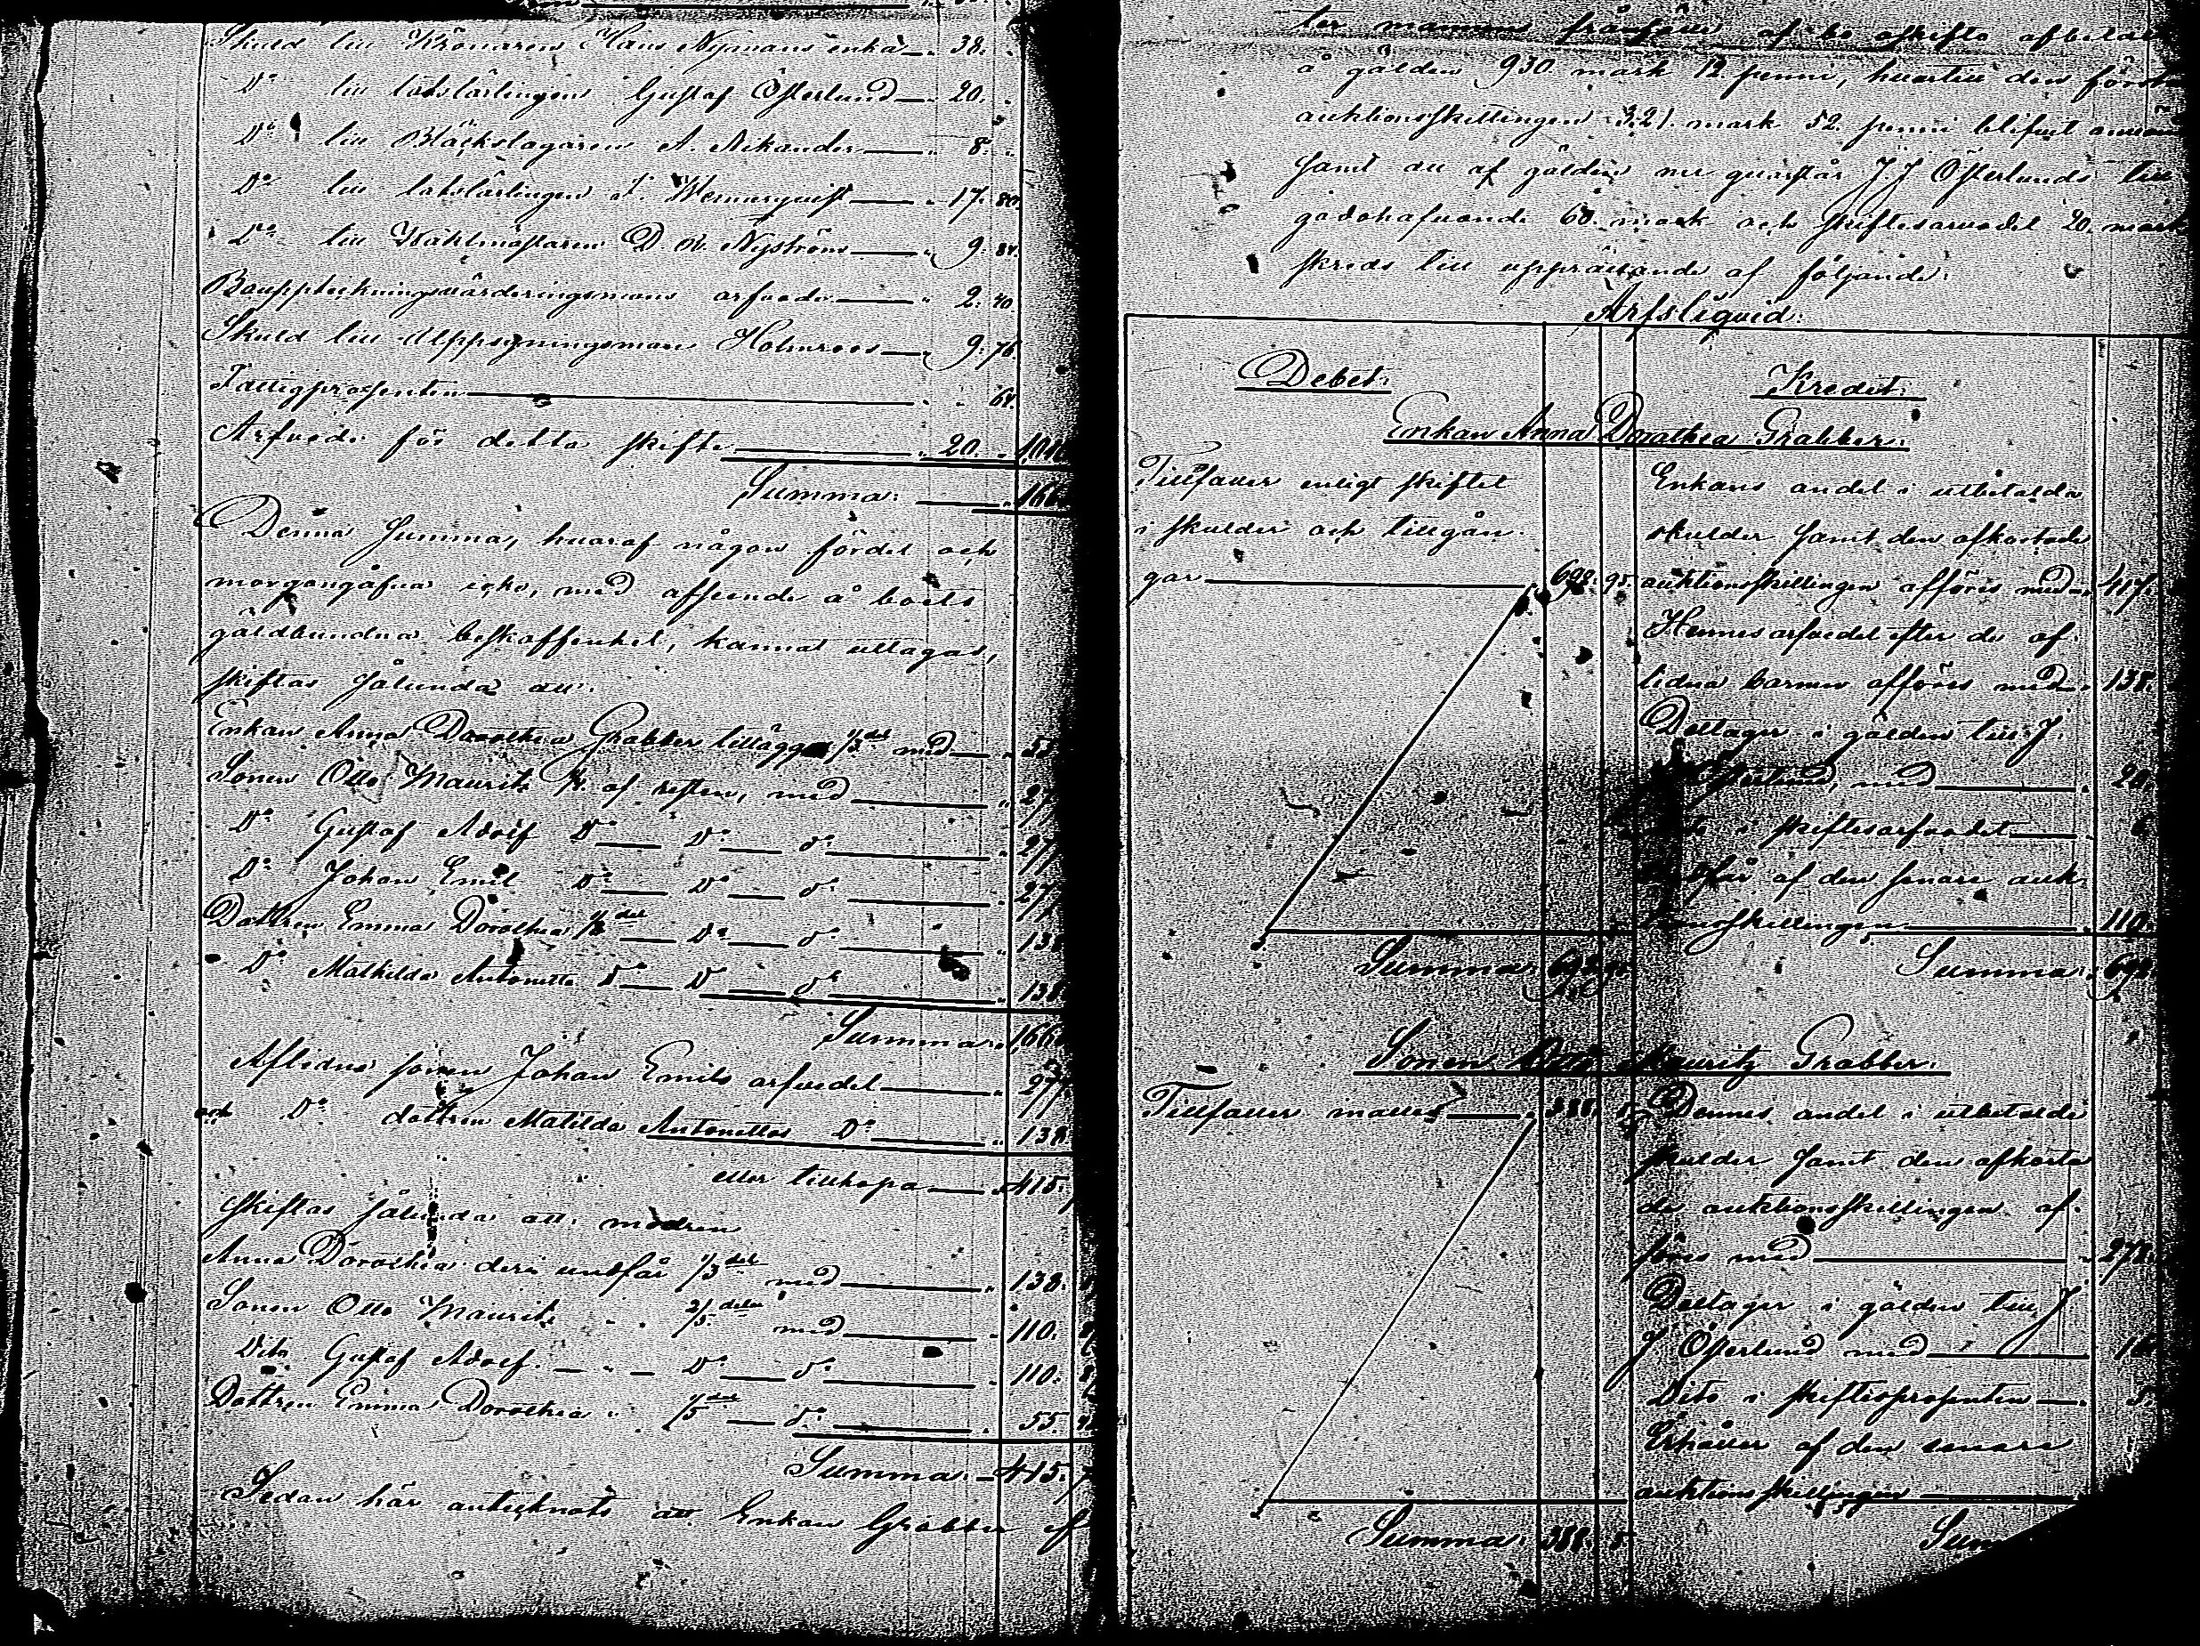 Skuld till Krönaren Hans Nymans enka — " 38. "
D:o till lotslärlingen Gustaf Österlund — " 20. "
D:o till Bläckslagaren A. Nikander — " 8. "
D:o till lotslärlingen Wennerqvist — " 17. 80.
D:o till Waktmästaren Nyström — " 9. 84.
Bouppteckningsvärderingsmans arfvode — " 2. 40.
Skuld till Uppsyningsman Holmroos — " 9. 76
Fattigprosenten — " " 64.
Arfvode för detta skifte — " 20. "
Summa: — " 166
Denna Summa, hvaraf någon fördel och
morgongåfva icke, med afseende å boets
gäldbundna beskaffenhet, kunnat uttagas,
skiftas sålunda att:
Enkan Anna Dorothea Grabber tillägges 1/3 del med — "
Sonen Otto Mauritz 1/4 af resten, med — " 277
D:o Gustaf Adolf D:o — D:o — d:o — " 277
D:o Johan Emil D:o — D:o — d:o — " 277
Dottren Emma Dorothea 1/8 del — D:o — d:o — " 138
D:o Mathilda Antonetta D:o — D:o — d:o — " 138
Summa: 166
Aflidne sonen Johan Emils arfvedel — " 277
och D:o dottren Matilda Antonettas D:o — " 138
eller tillhopa — " 415.
skiftas sålunda att: modren
Anna Dorothea deri undfår 1/3 del med — " 138.
Sonen Otto Mauritz " " 2/5 delar med — " 110.
Dito Gustaf Adolf — " — D:o — d:o — " 110.
Dottren Emma Dorothea " 1/5 del — d:o — " 55.
Summa: — 415.
Sedan här antecknats att Enkan Grabber ef
ter mannens frånfälle af bo oskifto afbetalt
å gälden 930 mark 12 penni, hvartill den först
auktionsskillingen 321 mark 52 penni blifvit
samt att af gälden nu qvarstår J J Österlunds till
godohafvande 60 mark och skiftesarvodet 20 mark
skreds till upprättande af följande:
Arfsliqvid:
Debet: Kredit:
Enkan Anna Dorothea Grabber:
Tillfaller enligt skiftet
i skulder och tillgån
gar — " 698. 95.
Summa: 698
Enkans andel i utbetalda
skulder samt den afkortade
auktionsskillingen afföres med — " 417.
Hennes arfvedel efter de af
lidna barnen afföres med — " 138.
Deltager i gälden till J.
Österlund, med — " 20.
i skiftesarfvodet — " 6
får af den senare auk
tionsskillingen — " 110.
Summa: 698
Sonen Otto Mauritz Grabber:
Tillfaller inalles — " 388. 5.
Summa: 388. 5.
Dennes andel i utbetalde
skulder samt den afkorta
de auktionsskillingen af
föres med — " 278.
Deltager i gälden till J
J Österlund med —
Dito i skiftesprosenten — " 5.
Erhåller af den senare
auktionsskillingen —